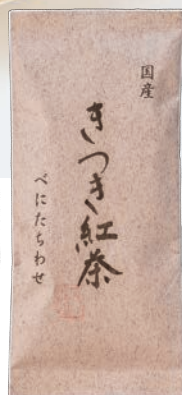 国産
きつき紅茶
べにたちわせ